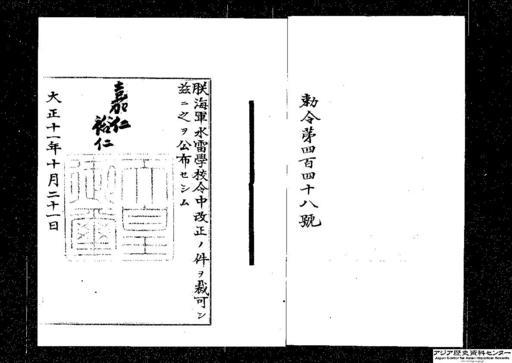 勅令第四百四十八號
朕海軍水雷學校令中改正ノ件ヲ裁可シ
茲ニ之ヲ公布セシム
嘉仁
裕仁
大正十一年十月二十一日
アジア歴史資料センター
Japan Center for Asian Historical Records